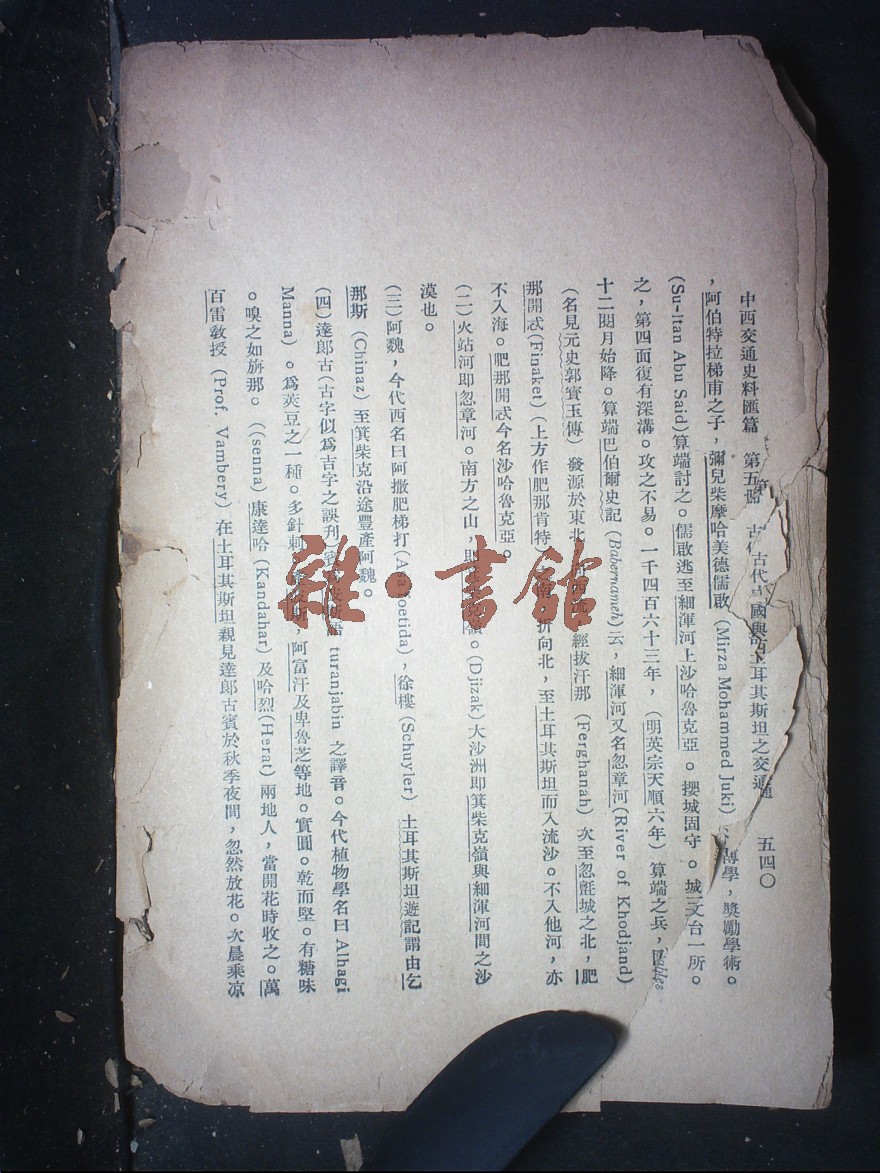 中西交通史料匯篇 第五 古代 國與 土耳其斯坦之交通 五四〇
，阿伯特拉梯甫之子，彌兒柴摩哈美德儒敢 (Mirza Mohammed Juki) 博學，獎勵學術。
(Su-ltan Abu Said) 算端討之。儒敢逃至細渾河上沙哈魯克亞。攖城固守。城三 台一所。
之，第四面復有深溝。攻之不易。一千四百六十三年，（明英宗天順六年）算端之兵，
十二閱月始降。算端巴伯爾史記 (Babernameh) 云，細渾河又名忽章河 (River of Khodjand)
（名見元史郭寶玉傳）發源於東北 經拔汗那 (Ferghanah) 次至忽氈城之北，肥
那開忒 (Finaket)（上方作肥那肯特） 折向北，至土耳其斯坦而入流沙。不入他河，亦
不入海。肥那開忒今名沙哈魯克亞。
（二）火站河即忽章河。南方之山，即 嶺。(Djizak) 大沙洲即箕柴克嶺與細渾河間之沙
漠也。
（三）阿魏，今代西名曰阿撒肥梯打 (Asa foetida)，徐樓 (Schuyler) 土耳其斯坦遊記謂由乞
那斯 (Chinaz) 至箕柴克沿途豐產阿魏。
（四）達郎古（古字似爲吉字之誤刊）賓 turanjabin 之譯音。今代植物學名曰 Alhagi
Manna)。爲莢豆之一種。多針刺。 斯，阿富汗及卑魯芝等地。實圓。乾而堅。有糖味
。嗅之如旃那。((senna) 康達哈 (Kandahar) 及哈烈 (Herat) 兩地人，當開花時收之。萬
百雷敎授 (Prof. Vambery) 在土耳其斯坦親見達郎古賓於秋季夜間，忽然放花。次晨乘凉
雜·書館